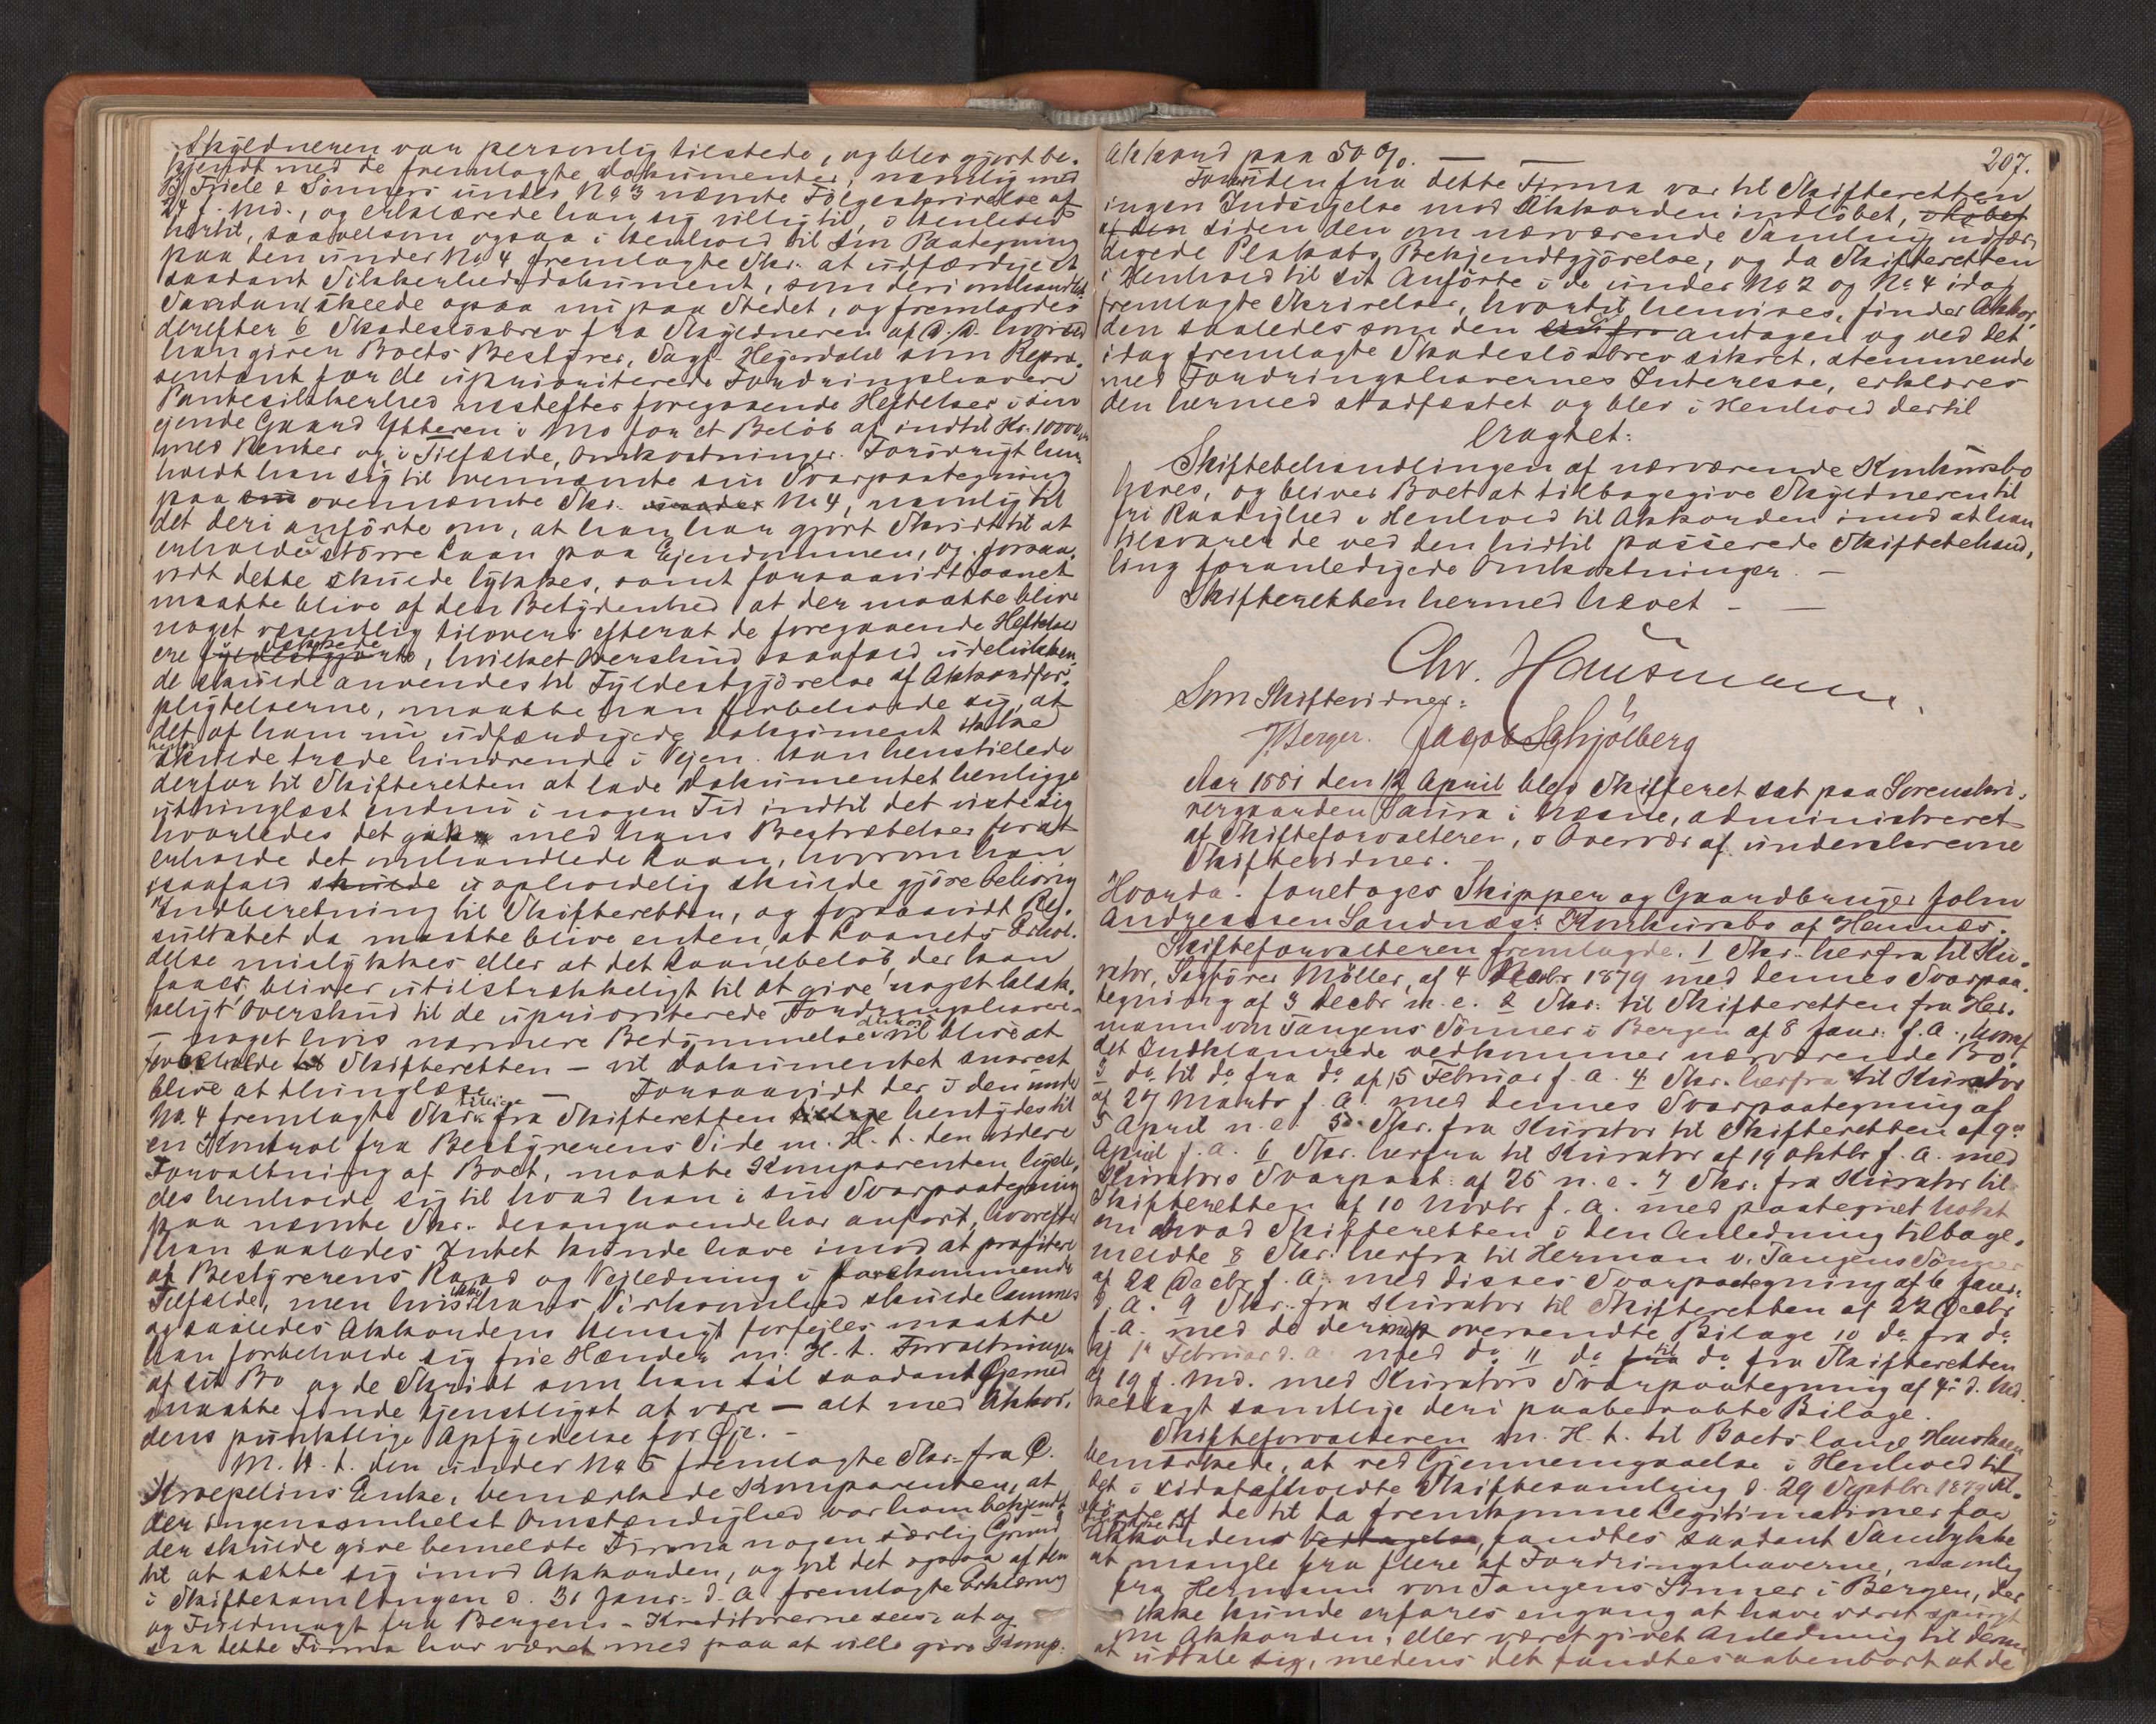 Skyldneren var personlig tilstede, og blev gjort be-
kjendt med de fremlagte Dokumenter, nemlig med
B. Friele & Sönners under No 3 nævnte Følgeskrivelse af
24 f. Md., og erklærede han sig villig til, i Henhold
hertil, saavelsom ogsaa i Henhold til sin Paategning
paa den under No 4 fremlagte Skr. at udfærdige et
saadant Sikkerhedsdokument, som deri omhandlet.
Saadant skeede ogsaa nu paa Stedet, og fremlagdes
derefter 6 Skadeslösbrev fra Skyldneren af d. D. hvorved
han giver Boets Bestyrer, Sagf. Hejerdahl som Repræ-
sentant for de uprioriterede Fordringshavere
Pantesikkerhed næstefter foregaaende Heftelser i sin
ejende Gaard Ytteren i Mo for et Belöb af indtil Kr. 10000
med Renter og i Tilfælde, Omkostninger. Forövrigt hen-
holdt han sig til svennævnte sin Svarpaategning
paa ovennævnte Skr. No 4, nemlig til
det deri anförte om, at han har gjort Skridt til at
erholde et större Laan paa Ejendommen, og forsaa-
vidt dette skulde lykkes, samt forsaavidt Laanet
maatte blive af den Betydenhed at der maatte blive
noget væsentlig tilovers efterat de foregaaende Heftelser
ere dækkede, hvilket Overskud isaafald udelukken-
de skulde anvendes til Fyldestgjörelse af Akkordfor-
pligtelserne, maatte han forbeholde sig, at
det af ham nu udfærdigede Dokument ikke
heri skulde træde hindrende i Vejen. Han henstillede
derfor til Skifteretten at lade Dokumentet henligge
utinglæst endnu i nogen Tid indtil det viste sig
hvorledes det gik med hans Bestræbelser for at
erholde det omhandlede Laan, hvorom han
isaafald skulde uopholdelig skulde gjöre behörig
Indberetning til Skifteretten, og forsaavidt Re-
sultatet da maatte blive enten, at Laanets Erhol-
delse mislykkes eller at det Laanebelöb, der kan
faaes bliver utilstrækkeligt til at give noget tilstræk-
keligt Overskud til de uprioriterede Fordringshavere
– noget hvis nærmere Bedömmelse derhos vil blive at
forbeholde Skifteretten – vil Dokumentet snarest
blive at thinglæse. – Forsaavidt der i den under
No. 4 fremlagte Skr. tillige fra Skifteretten hentydes til
en Kontrol fra Bestyrerens Side m. H. t. den videre
Forvaltning af Boet, maatte Komparenten ligele-
des henholde sig til hvad han i sin Svarpaategning
paa nævnte Skr. desangaaende har anfört, hvorefter
han saaledes Intet kunde have imod at profitere
af Bestyrerens Raad og Vejledning i forekommende
Tilfælde, men hvis hans Virksomhed skulde lammes
og saaledes Akkordens Hensigt forfejles maatte
han forbeholde sig frie Hænder m. H. t. Forvaltningen
af sit Bo og de Skridt som han til saadant Öjemed
maatte finde tjenstligst at være – alt med Akkor-
dens punktlige Opfyldelse for Öje. –
M. H. t. den under No 5 fremlagte Skr. fra C.
Kroepelins Enke, bemærkede Komparenten, at
der ingensomhelst Omstændighed var ham bekjendt
der skulde give bemeldte Firma nogen særlig Grund
til at sætte sig imod Akkorden, og vil det ogsaa af den
i Skiftesamlingen d. 31 Janr. d. A. fremlagte Erklæring
og Fuldmagt fra Bergens-Kreditorerne sees, at og-
saa dette Firma har været med paa at ville give Komp.
207.
Akkord paa 50 %. – –
Foruden fra dette Firma var til Skifteretten
ingen Indsigelse mod Akkorden indlöbet,
siden den om nærværende Samling udfær-
digede Plakats Bekjendtgjörelse, og da Skifteretten
i Henhold til sit Anförte i de under No 2 og No 4 idag
fremlagte Skrivelser, hvortil henvises, finder Akkor-
den saaledes som den antagen og ved det
idag fremlagte Skadeslösbrev sikret, stemmende
med Fordringshavernes Interesse, erklæres
den hermed stadfæstet og blev i Henhold dertil
Eragtet:
Skiftebehandlingen af nærværende Konkursbo
hæves, og bliver Boet at tilbagegive Skyldneren til
fri Raadighed i Henhold til Akkorden imod at han
tilsvarer de ved den hidtil passerede Skiftebehand-
ling foranledigede Omkostninger. –
Skifteretten hermed hævet – –
Chr. Hausmann.
Som Skiftevidner:
J. Berger. Jacob Schjölberg
Aar 1881 den 12 April blev Skifteret sat paa Sorenskri-
vergaarden Saura i Næsne, administreret
af Skifteforvalteren, i Overvær af underskrevne
Skiftevidner.
Hvorda: foretages Skipper og Gaardbruger John
Andreassen Sandnæs's Konkursbo af Hemnæs.
Skifteforvalteren fremlagde. 1 Skr. herfra til Ku-
rator, Sagförer Möller, af 4 1879 med dennes Svarpaa-
tegning af 3 Decbr n. e. 2 Skr. til Skifteretten fra Her-
mann von Tangens Sönner i Bergen af 8 Janr. f. A., hvoraf
det Indklamrede vedkommer nærværende Bo.
3 do til do fra do af 15 Februar f. A. 4 Skr. herfra til Kurator
af 29 Marts f. A. med dennes Svarpaategning af
5 April n. e. 5 Skr. fra Kurator til Skifteretten af 9de
April f. A. 6 Skr. herfra til Kurator af 19 Oktbr f. A. med
Kurators Svarpaat. af 25 n. e. 7 Skr. fra Kurator til
Skifteretten af 10 Novbr f. A. med paategnet Notat
om hvad Skifteretten i den Anledning tilbage-
meldte 8 Skr. herfra til Herman v. Tangens Sönner
af 22 Decbr f. A. med disses Svarpaategning af 6 Janr.
d. A. 9 Skr. fra Kurator til Skifteretten af 22 Decbr
f. A. med de dermed oversendte Bilage 10 do fra do
af 1ste Februar d. A. med do 11 do til do fra Skifteretten
af 19 f. Md. med Kurators Svarpaategning af 4de d. Md.
vedlagt samtlige deri paaberaabte Bilage.
Skifteforvalteren m. H. t. til Boets lange Henstaaen
bemærkede, at ved Gjennemgaaelse i Henhold til
det i sidstafholdte Skiftesamling d. 29 Septbr. 1879 til-
förte af de til da fremkomne Legitimationer for
Akkordens, fandtes saadant Samtykke
at mangle fra flere af Fordringshaverne, namlig
fra Hermann von Tangens Sönner i Bergen, der
ikke kunde erfares engang at have været spurgt
om Akkorden, eller været givet Anledning til derom
at udtale sig, medens det fandtes aabenbart at de